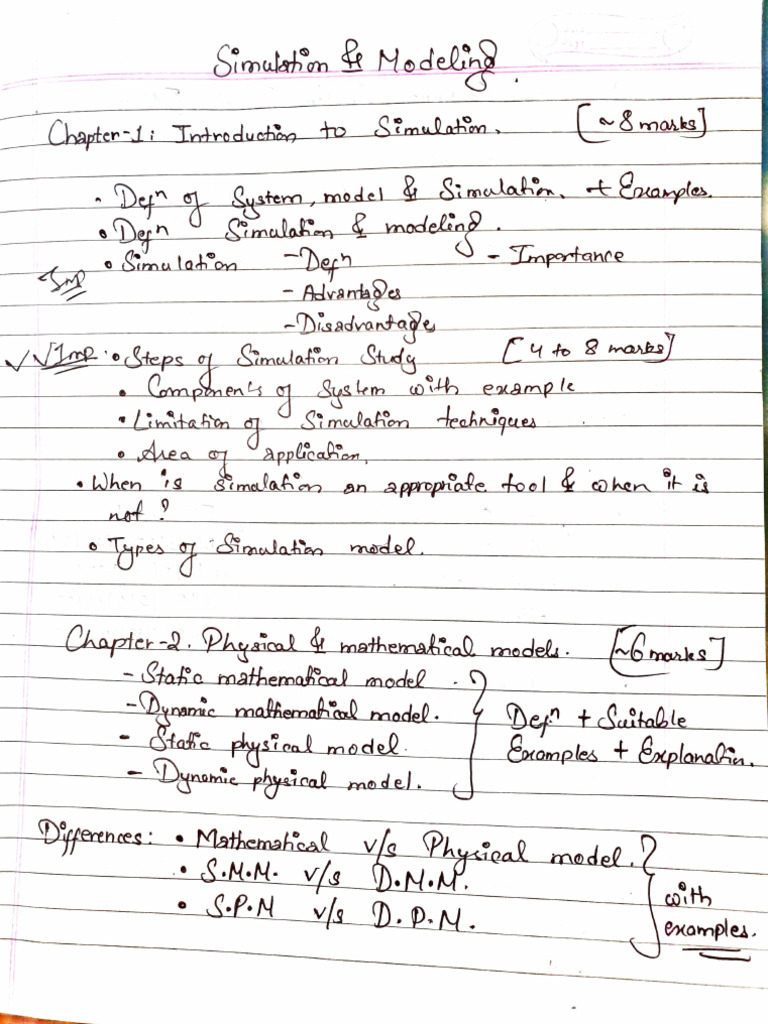 Simulation & Modeling.
Chapter-1: Introduction to Simulation. [~8 marks]
• Defⁿ of System, model & Simulation. + Examples.
• Defⁿ Simulation & modeling.
Imp • Simulation - Defⁿ - Importance
- Advantages
- Disadvantages
✓✓ Imp. • Steps of Simulation Study [4 to 8 marks]
• Components of System with example
• Limitation of Simulation techniques
• Area of application.
• When is simulation an appropriate tool & when it is
not?
• Types of Simulation model.
Chapter-2. Physical & mathematical models. [~6 marks]
- Static mathematical model.
- Dynamic mathematical model. Defⁿ + Suitable
- Static physical model. Examples + Explanation.
- Dynamic physical model.
Differences: • Mathematical v/s Physical model.
• S.M.M. v/s D.M.M. with
• S.P.M v/s D.P.M. examples.